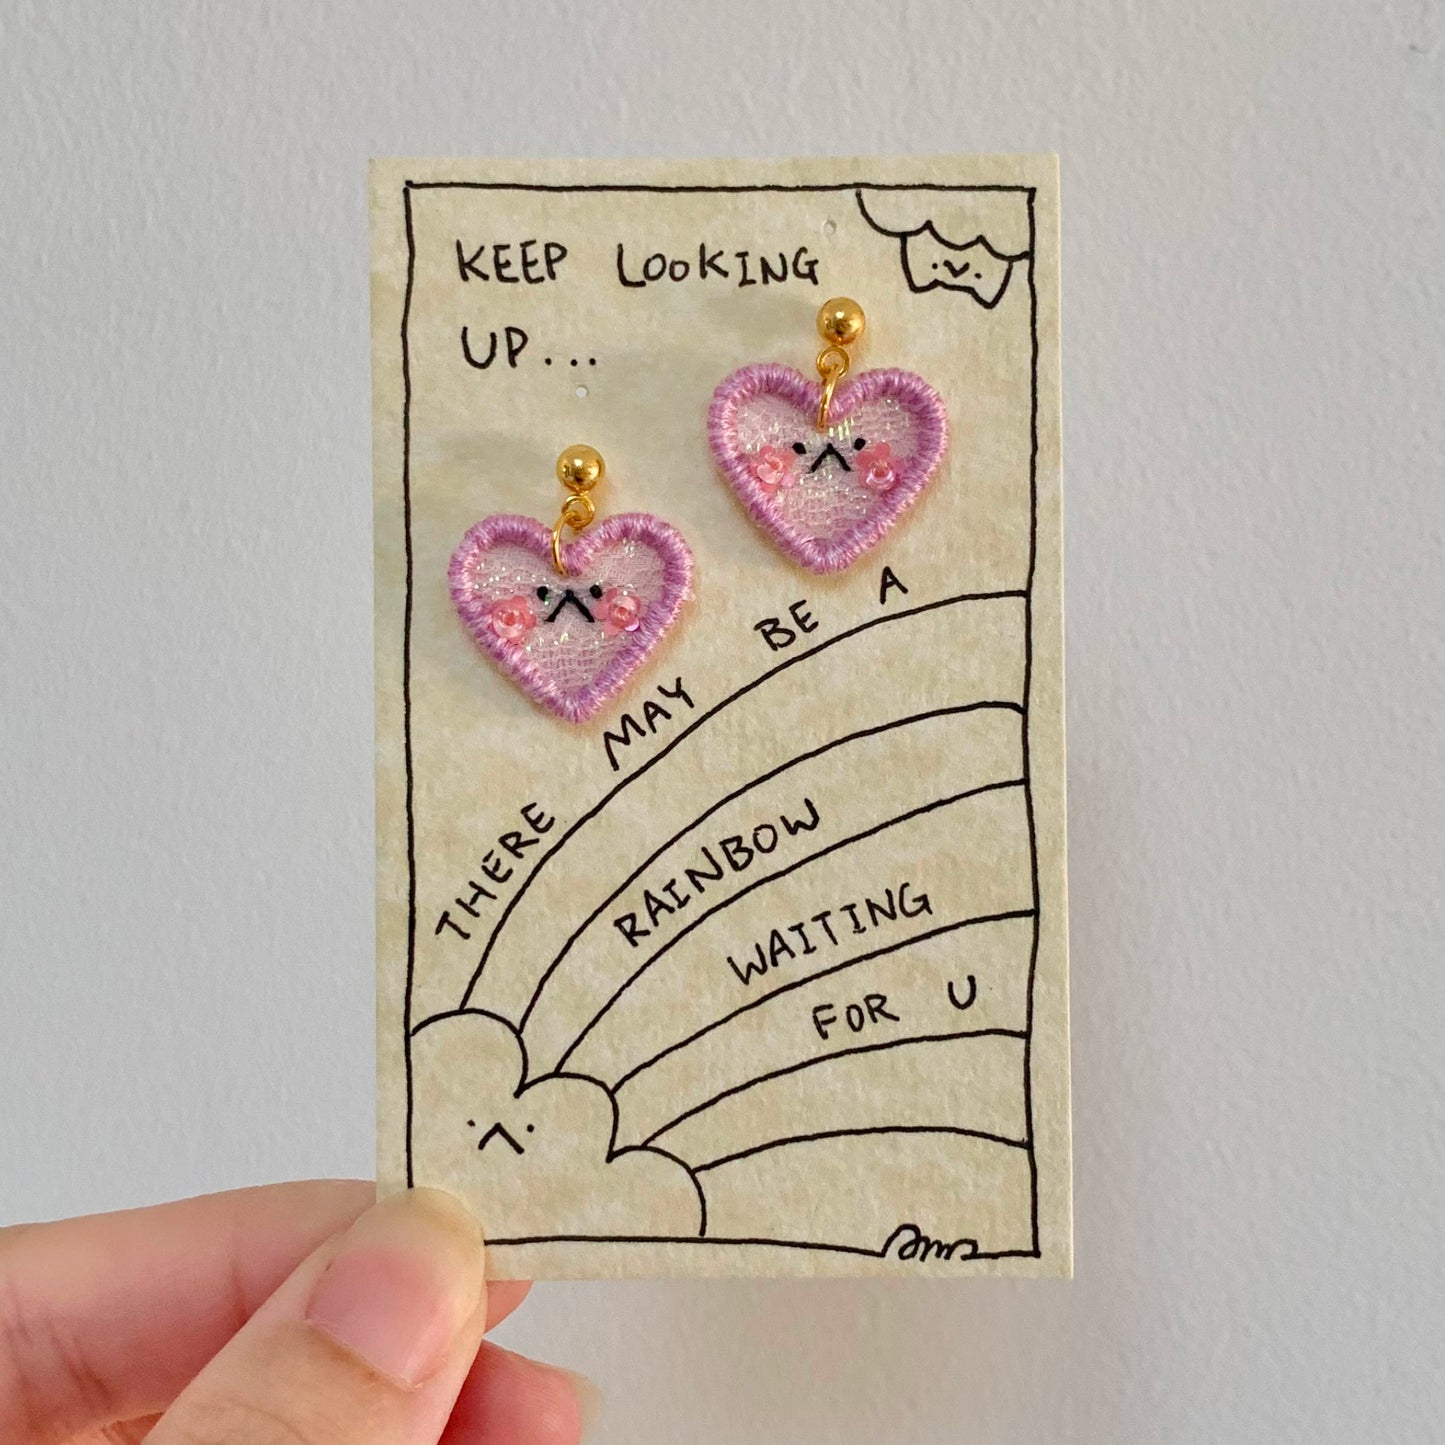 KEEP LOOKING
UP...
THERE MAY BE A
RAINBOW
WAITING
FOR U